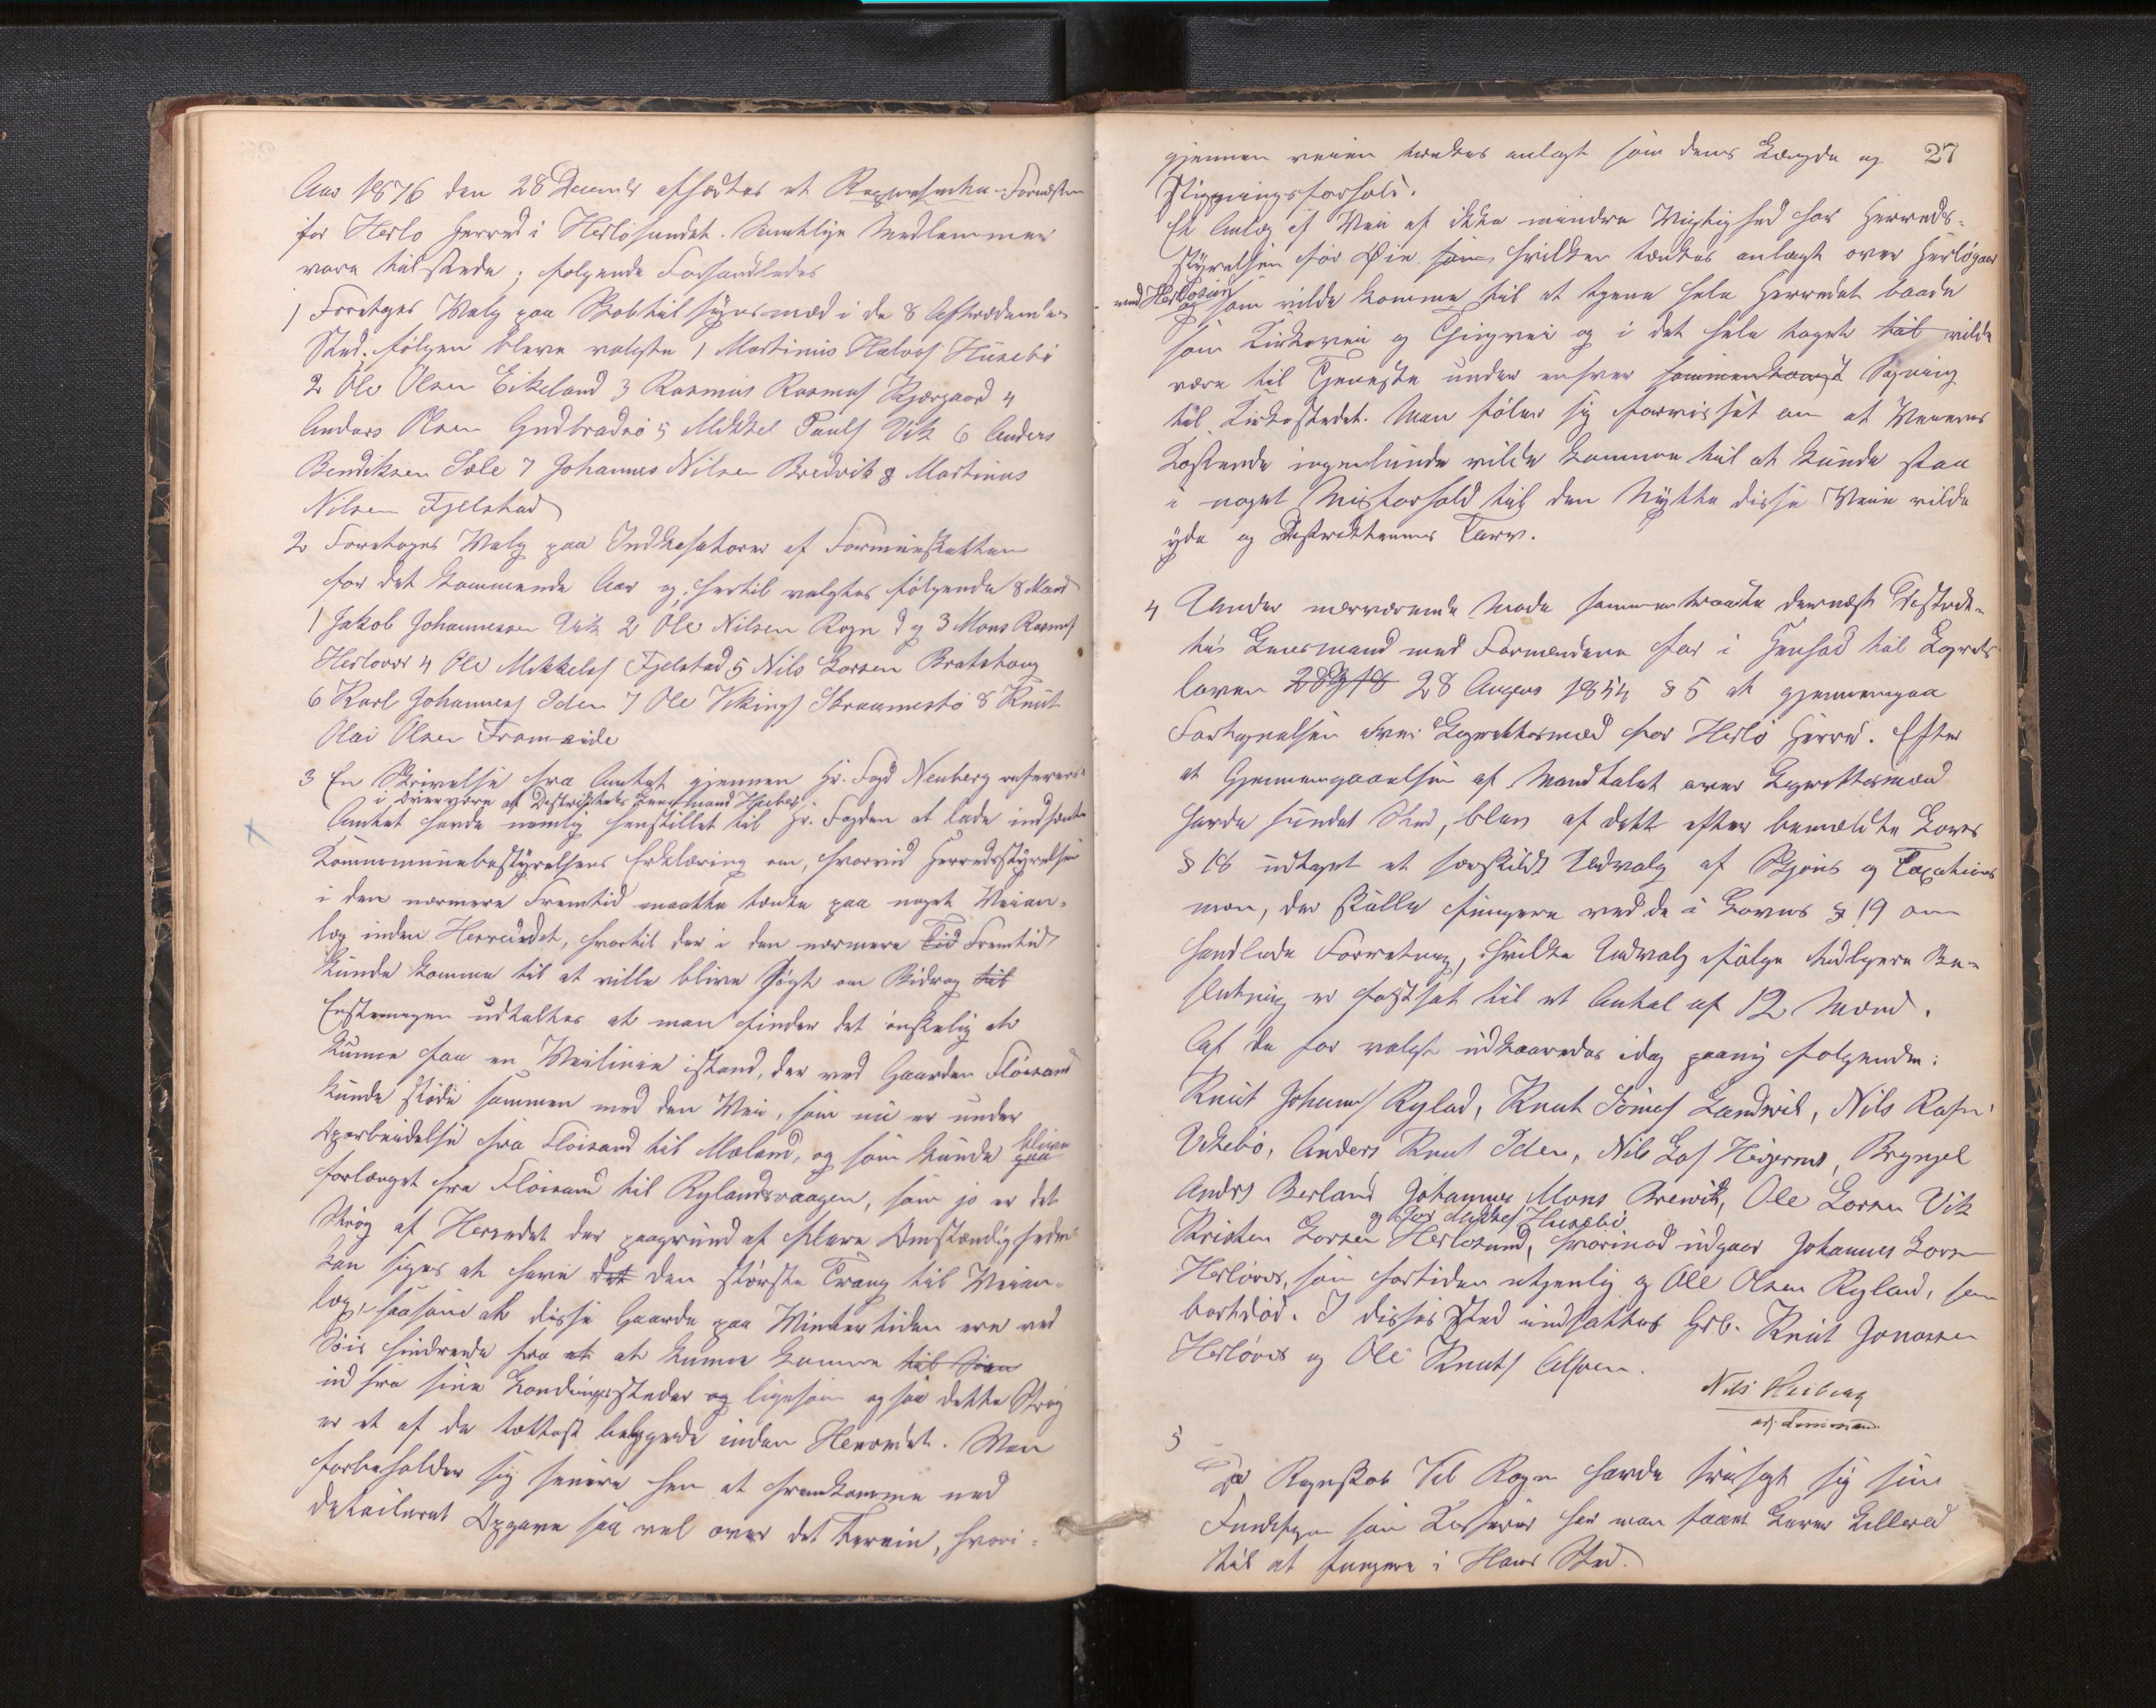 Aar 1876 den 28 Decembr afholdtes et Repræsentan-Formøden
for Herlo Herred i Herlosundet. Samtlige Medlemmer
vare tilstede; folgende Forhandledes
1 Foretoges Valg paa Skoletilsynsmæd i de 8 Aftrædendes
Sted. følgen bleve valgte 1 Martinus Halvors Husebø
2 Ole Olsen Eikeland 3 Rasmus Rasmus Kjærgaard 4
Anders Olsen Gudbradsø 5 Mikkel Pauls Vik 6 Anders
Bendiksen Sæle 7 Johannes Nilsen Bredvik 8 Martinus
Nilsen Fjelstad
2 Foretoges Valg paa Indkasatorer af Formueskatten
for det kommende Aar og hertil valgtes følgende 8 Mand
1 Jakob Johannessen Vik 2 Ole Nilsen Rogn d y 3 Mons Rasmus
Herlover 4 Ole Mikkels Fjelstad 5 Nils Larsen Bratshaug
6 Karl Johannes Iden 7 Ole Vikings Straumestø 8 Knut
Olai Olsen Fromreide
3 En Skrivelse fra Amtet gjennem Hr. Fogd Neuberg refereredes
i overvære af Destriktets Lensmand Heiberg.
Amtet havde nemlig henstillet til Hr. Fogden at lade indhente
Kommunebestyrelsens Erklæring om, hvorvid Herredsstyrelsen
i den nærmere Fremtid maatte tænke paa noget Veian-
læg inden Herredet, hvortil der i den nærmere Tid Fremtid
kunde komme til at ville blive søgt om Bidrag til
udtaltes at man finder det ønskelig at
kunne faa en Veilinie istand, der ved Gaarden Fløisand
kunde støde sammen med den Vei, som nu er under
Oparbeidelse fra Fløisand til Mæland, og som kunde gaa blive
forlænget fra Fløisand til Rylandsvaagen, som jo er det
Strøg af Herredet der paagrund af flere Omstændigheder
kan siges at have det den største Trang til Veian-
læg, saasom at disse Gaarde paa Vintertiden ere ved
Iis hindrede fra at at kunne komme til Søen
ud fra sine Landingssteder og ligesom ogsaa dette Strøg
er et af de tættest bebyggede inden Herredet. Man
forbeholder sig senere hen at fremkomme med
detaileret Opgave saa vel over det Terrein, hvori-
27
gjennem veien tænkes anlagt som dens Længde og
Stigningsforhold.
Et Anlæg af Vei af ikke mindre Vigtighed har Herreds-
styrelsen for Øie som hvilken tænkes anlagt over Herløgaar
med Herlosund og som vilde komme til at tjene hele Herredet baade
som Kirkevei og Thingvei og i det hele taget til vilde
være til Tjeneste under enhver sammenkomst Søgning
til Kirkestedet. Man føler sig forvisset om at Veienes
Kostende ingenlunde vilde komme til at kunde staa
i noget Misforhold til den Nytte disse Veie vilde
yde og Destrikternes Tarv.
4 Under nærværende Møde sammentraadte dernæst Destrik-
tes Lensmand med Formændene for i Henhold til Lagrets
loven 28 Aug 18 28 August 1854 § 5 at gjennemgaa
Fortegnelsen over Lagrettesmæd for Herlø Herred. Efter
at Gjennemgaaelsen af Mandtalet over Lagrettesmæd
havde fundet Sted, blev af dett efter bemældte Lovs
§ 18 udtaget et særskildt Udvalg af Skjøns og Taxations
mæn, der skulle fungere ved de i Lovens § 19 om
handlede Forretning, hvilke Udvalg ifølge tidligere Be-
slutning er fastsat til et Antal af 12 Mænd.
Af de før valgte udkaaredes idag paany følgende:
Knut Johannes Rylad, Knut Simes Landvik, Nils Rasm
Uthebø, Anders Knut Iden, Nils Las Heigernes, Brynjel
Andrs Berland Johannes Mons Brewik, Ole Larsen Vik
og Per Mikkel Husebø
Kristen Larsen Herlosund, hvorimod udgaar Johannes Larsen
Herløver, som fortiden utjenlig og Ole Olsen Ryland, som
bortdød. I disses Sted indsattes Hrb. Knut Jonassen
Herløver og Ole Knuts Alsven.
Nils Heiberg
cst Lensmand
5
Da Regnskab Vil Rogn havde frasagt sig sin
Funktion som Kasserer har man faaet Larse Killerud
til at fungere i Hans Sted.